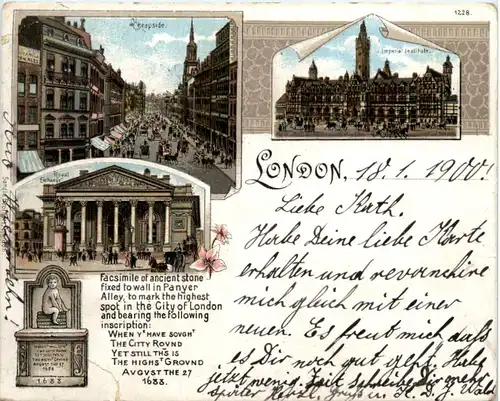 1228.
Cheapside.
Imperial Institute.
Royal
Exchange
LONDON, 18.1.1900!
Liebe Kath.
Habe Deine liebe Karte
erhalten und revanchire
mich gleich mit einer
neuen. Es freut mich dass
es Dir noch gut geht. Habe
jetzt wenig Zeit schreibe Dir mehr
später
Facsimile of ancient stone
fixed to wall in Panyer
Alley, to mark the highest
spot in the City of London
and bearing the following
inscription:
WHEN Y^E HAVE SOVGHT
THE CITTY ROVND
YET STILL THIS IS
THE HIGHST GROVND
AVGVST THE 27
1688.
1688